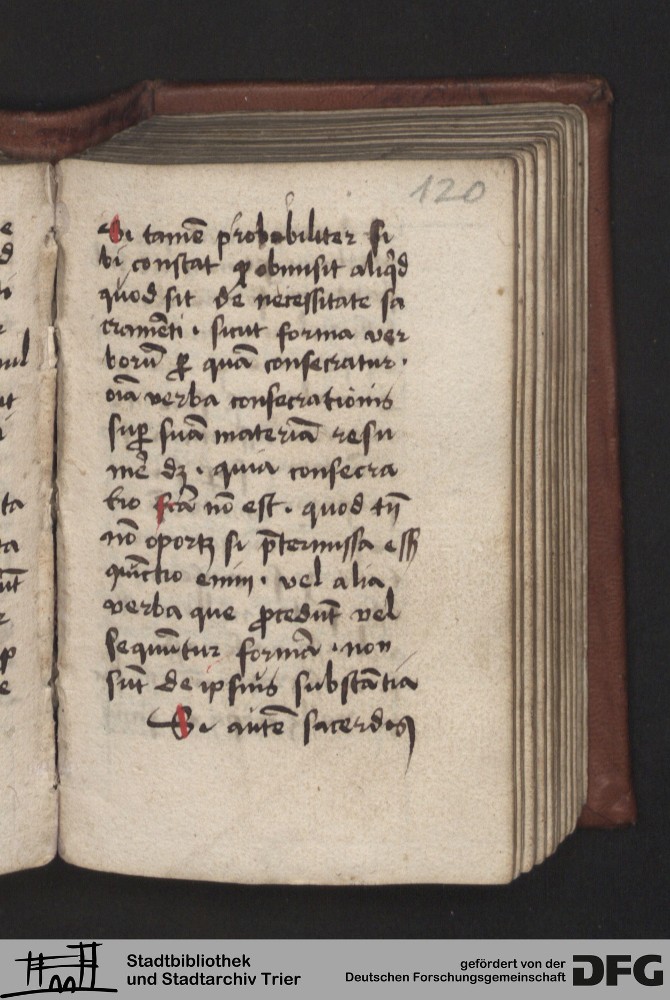 120
Si tamē probabiliter si
bi constat ꝙ obmisit aliqd
quod sit de necessitate sa
cramēti · sicut forma ver
borū ꝑ quā consecratur ·
oīa verba consecrationis
suꝑ suā materiā resu
mē dꝫ · quia consecra
tio fcā nō est · quod tn̄
nō oportꝫ si p̄termissa ess
qūctio enim · vel alia
verba que ꝓcedūt vel
sequūtur formā · non
sūt de ipsius substātia
Si autē sacerdos
Stadtbibliothek
und Stadtarchiv Trier
gefördert von der
Deutschen Forschungsgemeinschaft
DFG